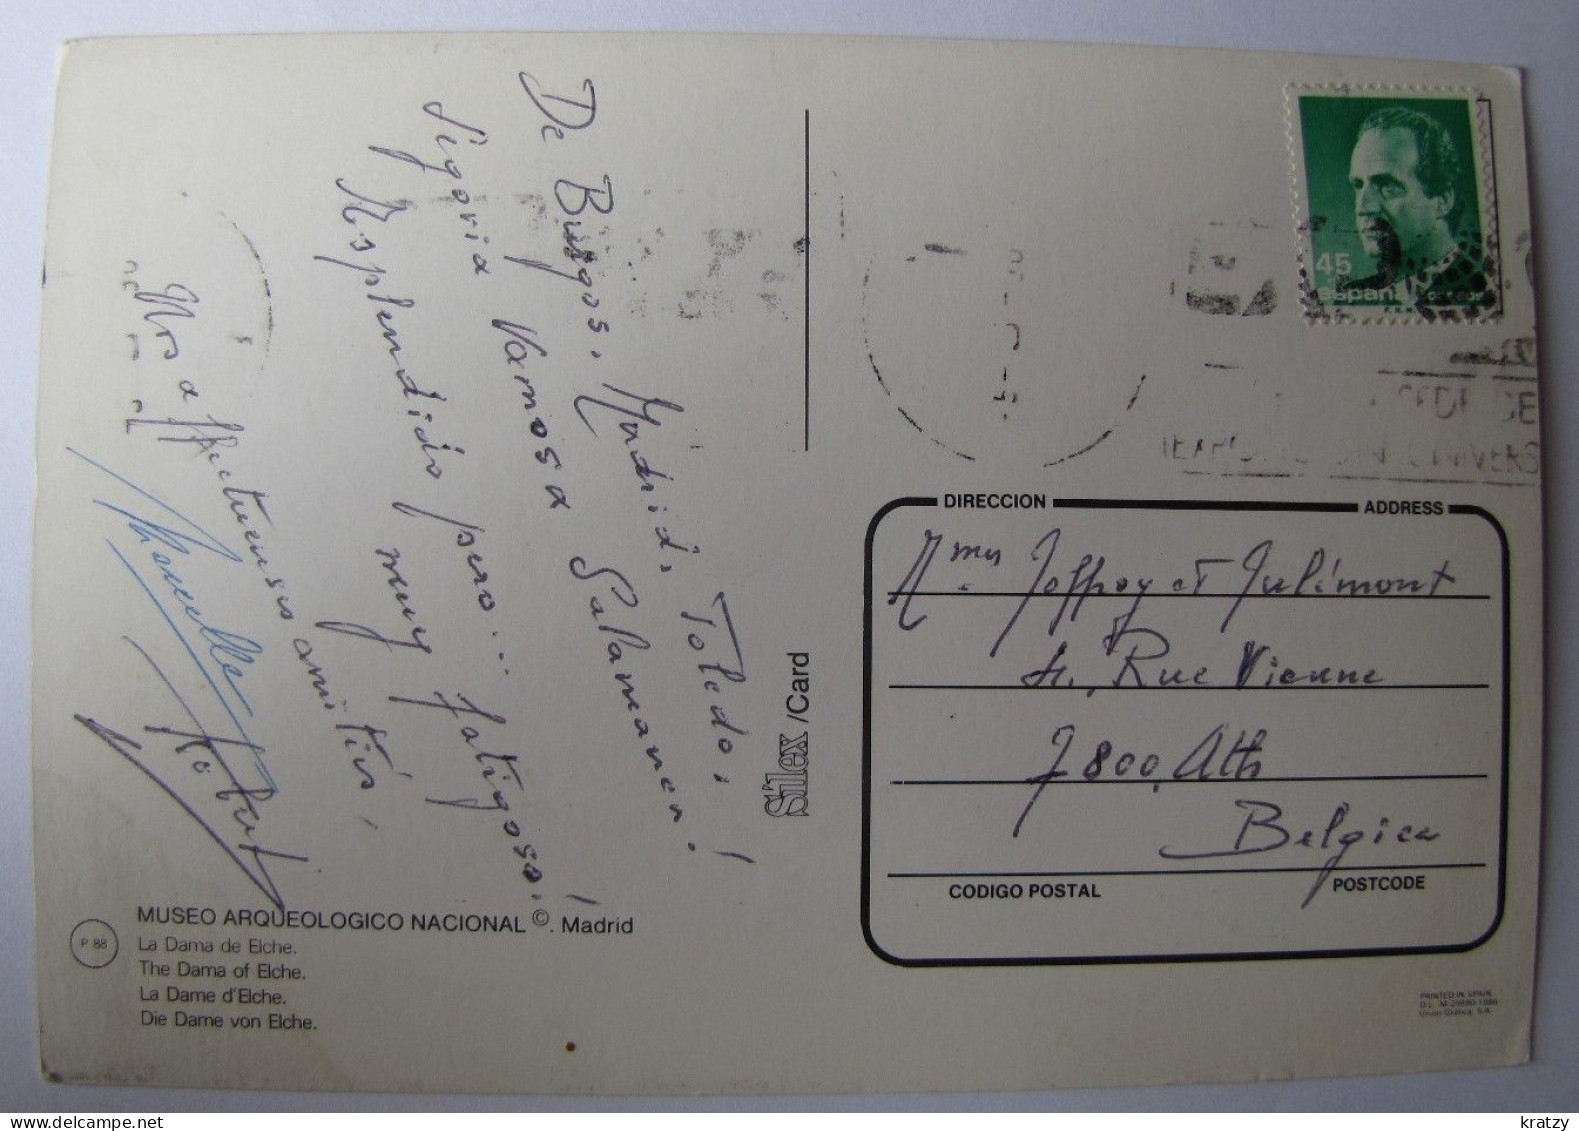 De Burgos, Madrid, Toledo,
Segovia vamos a Salamanca!
Resplendido pero... fatigoso!
muy
Mis affectuensis amitiés,
Robert
Silex /Card
45
españa
correos
DIRECCION ADDRESS
Mmes Joffroy et Julimont
4, Rue Vienne
7800, Ath
Belgica
CODIGO POSTAL POSTCODE
P 88
MUSEO ARQUEOLOGICO NACIONAL ©. Madrid
La Dama de Elche.
The Dama of Elche.
La Dame d'Elche.
Die Dame von Elche.
PRINTED IN SPAIN
Unión Gráfica, S.A.
kratzy